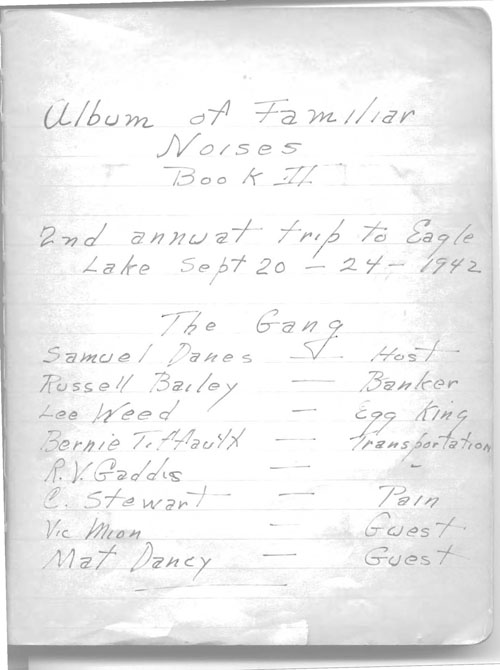 Album of Familiar
Noises
Book II
2nd annual trip to Eagle
Lake Sept 20 - 24 - 1942
The Gang
Samuel Danes — Host
Russell Bailey — Banker
Lee Weed — Egg King
Bernie Tiffault — Transportation
R.V. Gaddis — "
C. Stewart — Pain
Vic Mion — Guest
Mat Dancy — Guest